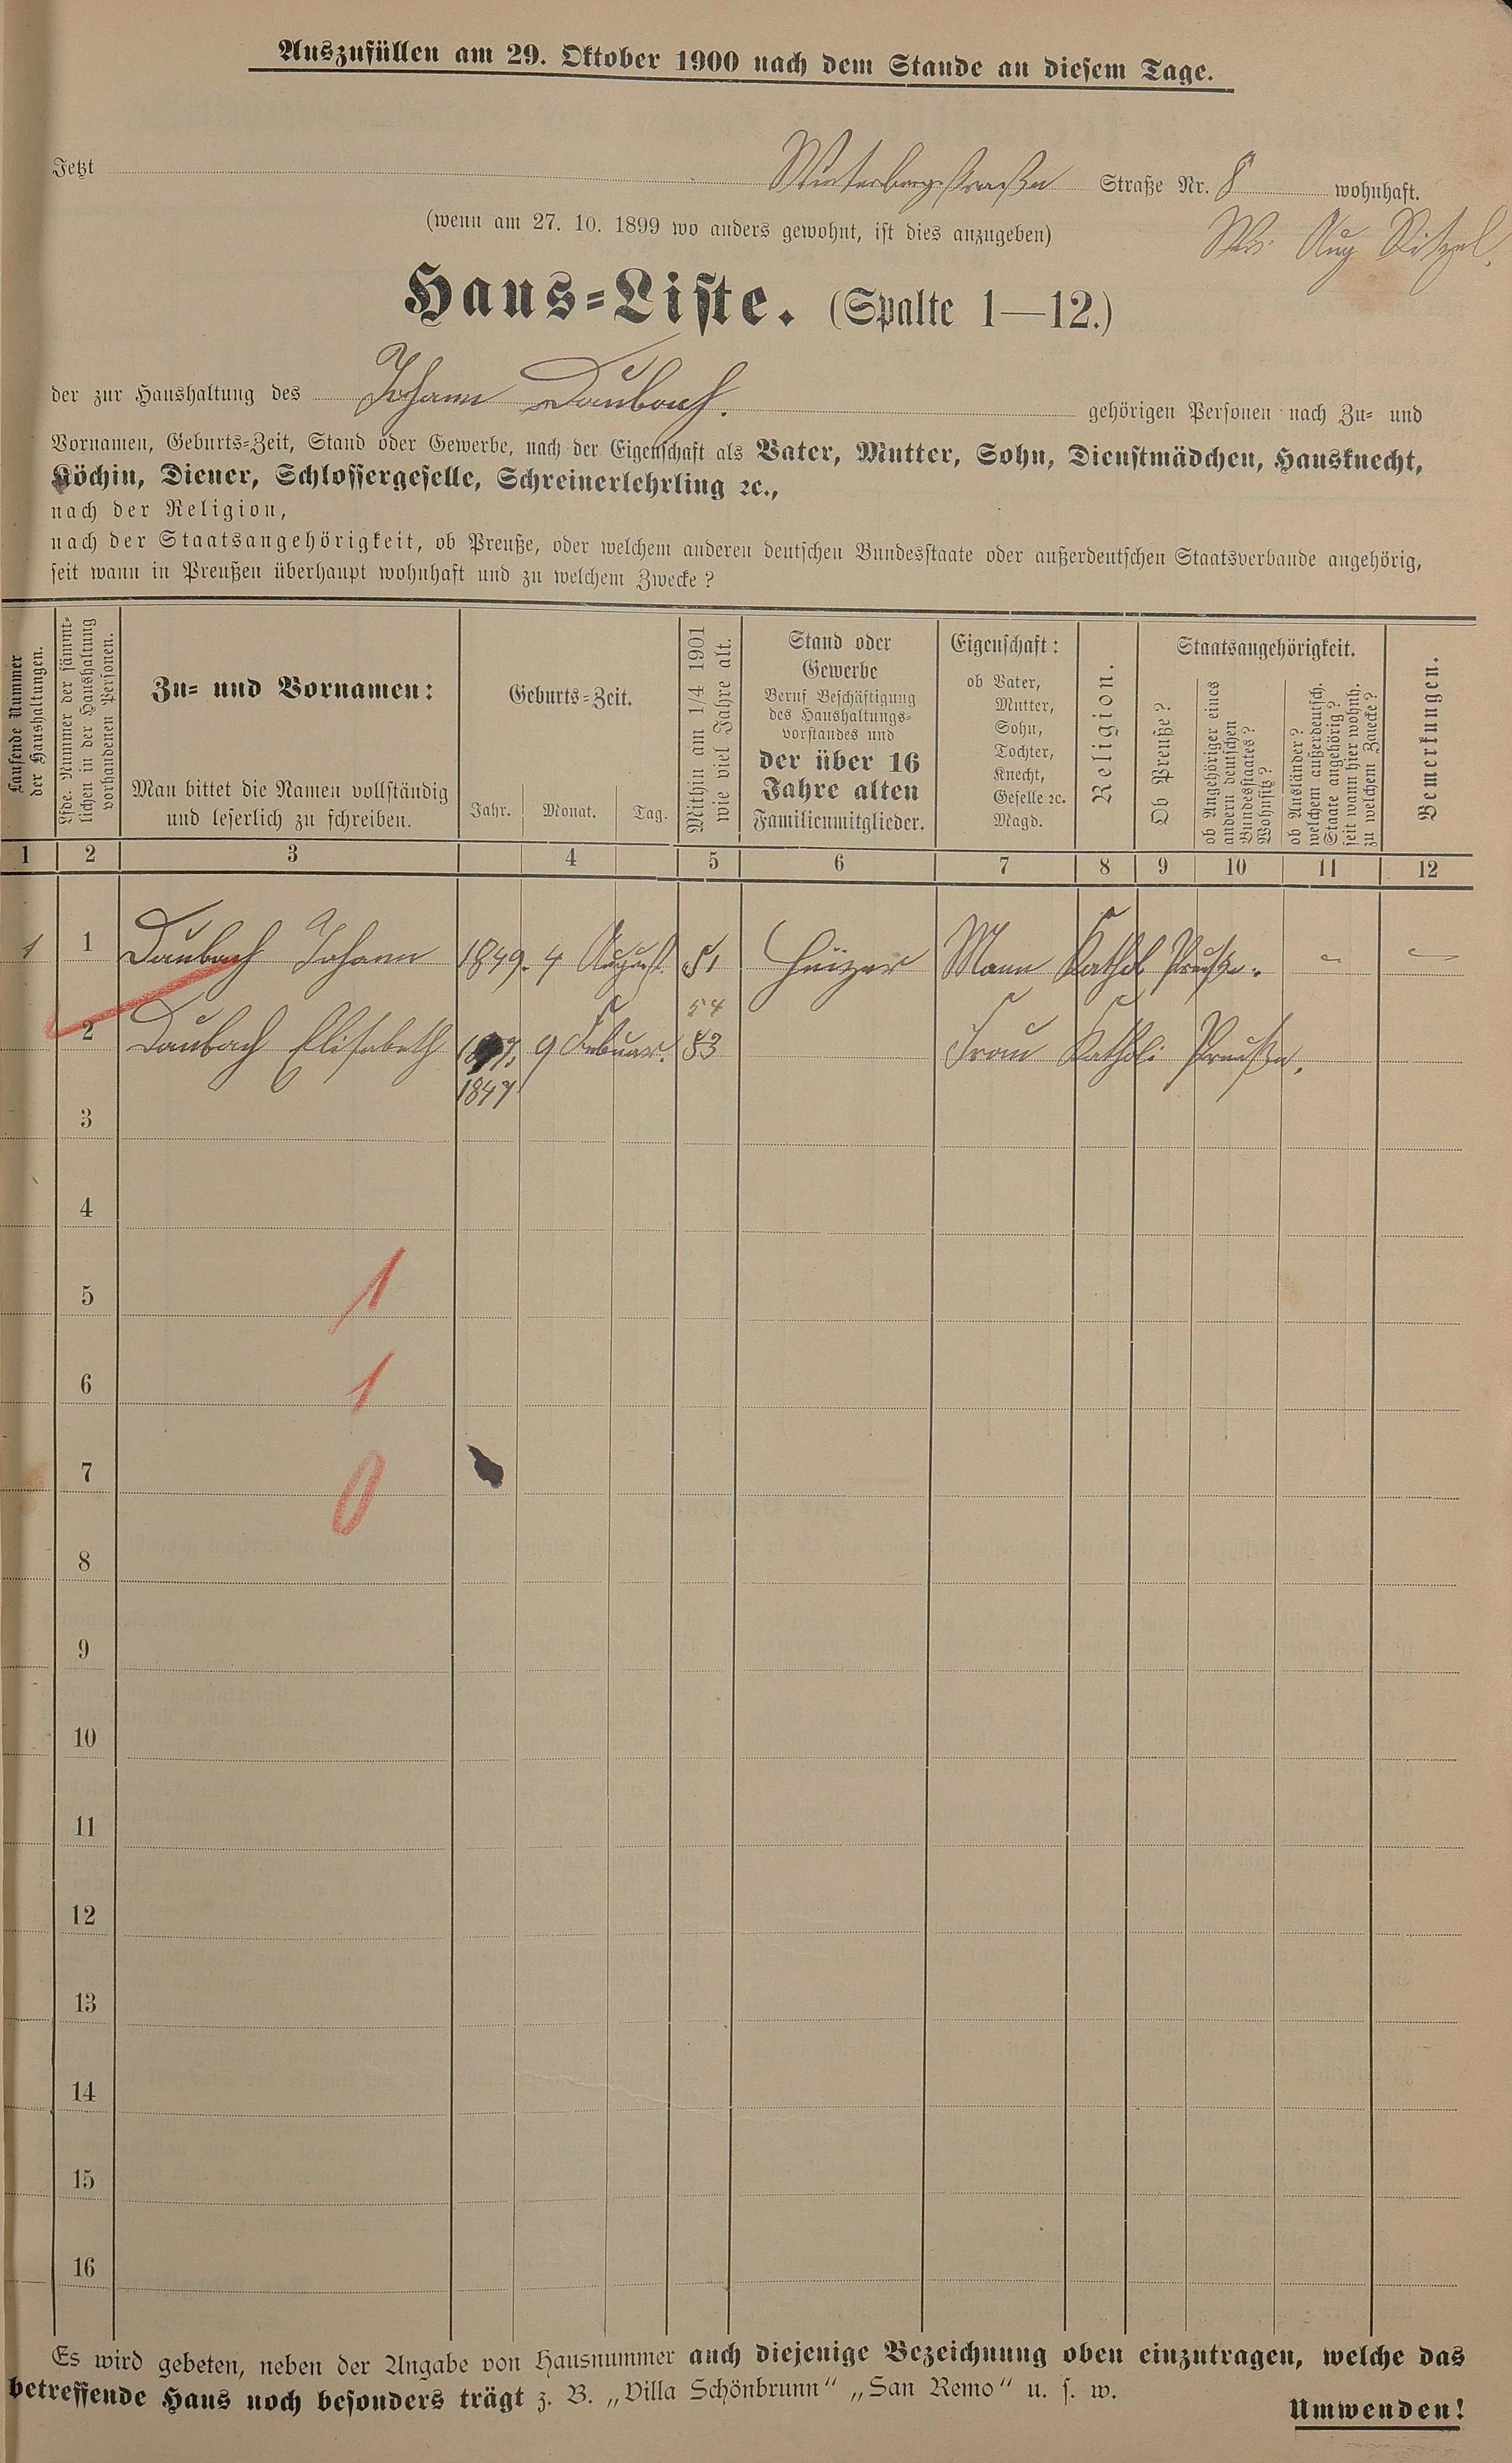 Auszufüllen am 29. Oktober 1900 nach dem Stande an diesem Tage.
Jetzt Winterbergstraße Straße Nr. 8 wohnhaft.
(wenn am 27. 10. 1899 wo anders gewohnt, ist dies anzugeben)
Aug
Haus-Liste. (Spalte 1—12.)
der zur Haushaltung des Johann Daubach. gehörigen Personen nach Zu- und
Vornamen, Geburts-Zeit, Stand oder Gewerbe, nach der Eigenschaft als Vater, Mutter, Sohn, Dienstmädchen, Hausknecht,
Köchin, Diener, Schlossergeselle, Schreinerlehrling ꝛc.,
nach der Religion,
nach der Staatsangehörigkeit, ob Preuße, oder welchem anderen deutschen Bundesstaate oder außerdeutschen Staatsverbande angehörig,
seit wann in Preußen überhaupt wohnhaft und zu welchem Zwecke?
Laufende Nummer
der Haushaltungen.
Lfde. Nummer der sämmt-
lichen in der Haushaltung
vorhandenen Personen.
Zu- und Vornamen:
Man bittet die Namen vollständig
und leserlich zu schreiben.
Geburts-Zeit.
Jahr. Monat. Tag.
Mithin am 1/4 1901
wie viel Jahre alt.
Stand oder
Gewerbe
Beruf Beschäftigung
des Haushaltungs-
vorstandes und
der über 16
Jahre alten
Familienmitglieder.
Eigenschaft:
ob Vater,
Mutter,
Sohn,
Tochter,
Knecht,
Geselle ꝛc.
Magd.
Religion.
Staatsangehörigkeit.
Ob Preuße?
ob Angehöriger eines
andern deutschen
Bundesstaates?
Wohnsitz?
ob Ausländer?
welchem außerdeutsch.
Staate angehörig?
seit wann hier wohnh.
zu welchem Zwecke?
Bemerkungen.
1 2 3 4 5 6 7 8 9 10 11 12
1 1 Daubach Johann 1849. 4 August. 51 Heizer Mann Kathol. Preuße. - —
54
2 Daubach Elisabeth 9 Febuar. 53 Frau Katholi Preuße.
1847
3
4
5 1
6 1
7 0
8
9
10
11
12
13
14
15
16
Es wird gebeten, neben der Angabe von Hausnummer auch diejenige Bezeichnung oben einzutragen, welche das
betreffende Haus noch besonders trägt z. B. „Villa Schönbrunn“ „San Remo“ u. s. w.
Umwenden!